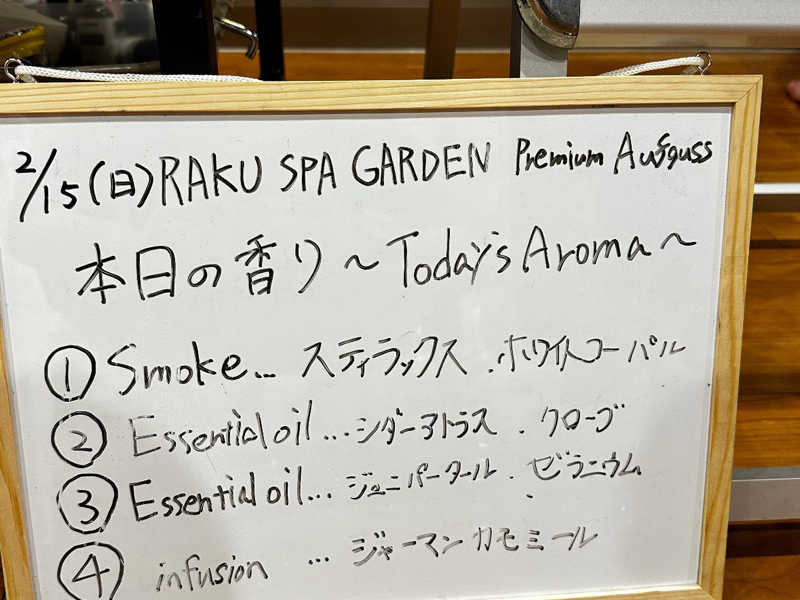 2/15(日) RAKU SPA GARDEN Premium Aufguss
本日の香り ～Today's Aroma～
① Smoke... スティラックス.ホワイトコーパル
② Essential oil...シダーアトラス.クローブ
③ Essential oil...ジュニパータール.ゼラニウム
④ infusion ...ジャーマンカモミール